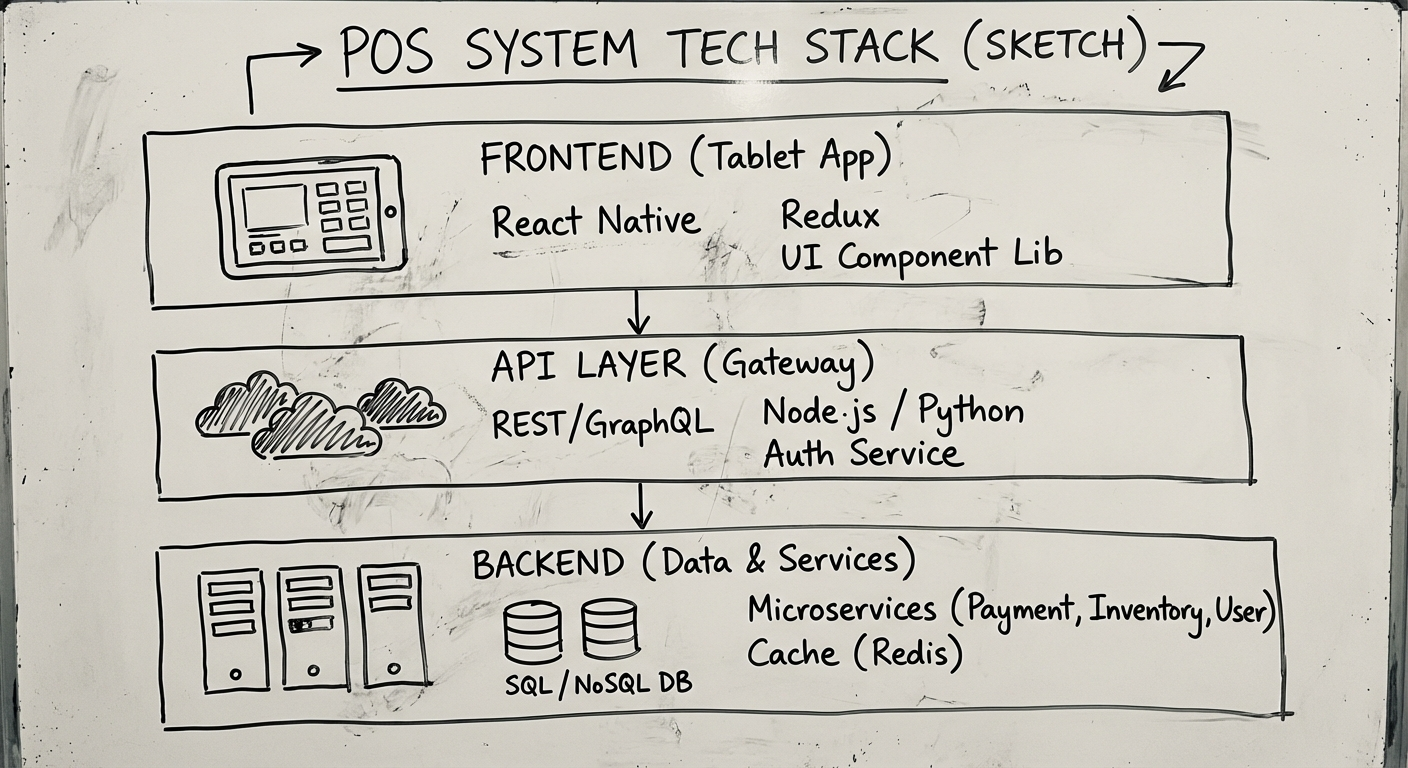 POS SYSTEM TECH STACK (SKETCH)
FRONTEND (Tablet App)
React Native
Redux
UI Component Lib
API LAYER (Gateway)
REST/GraphQL
Node.js / Python
Auth Service
BACKEND (Data & Services)
SQL/NoSQL DB
Microservices (Payment, Inventory, User)
Cache (Redis)